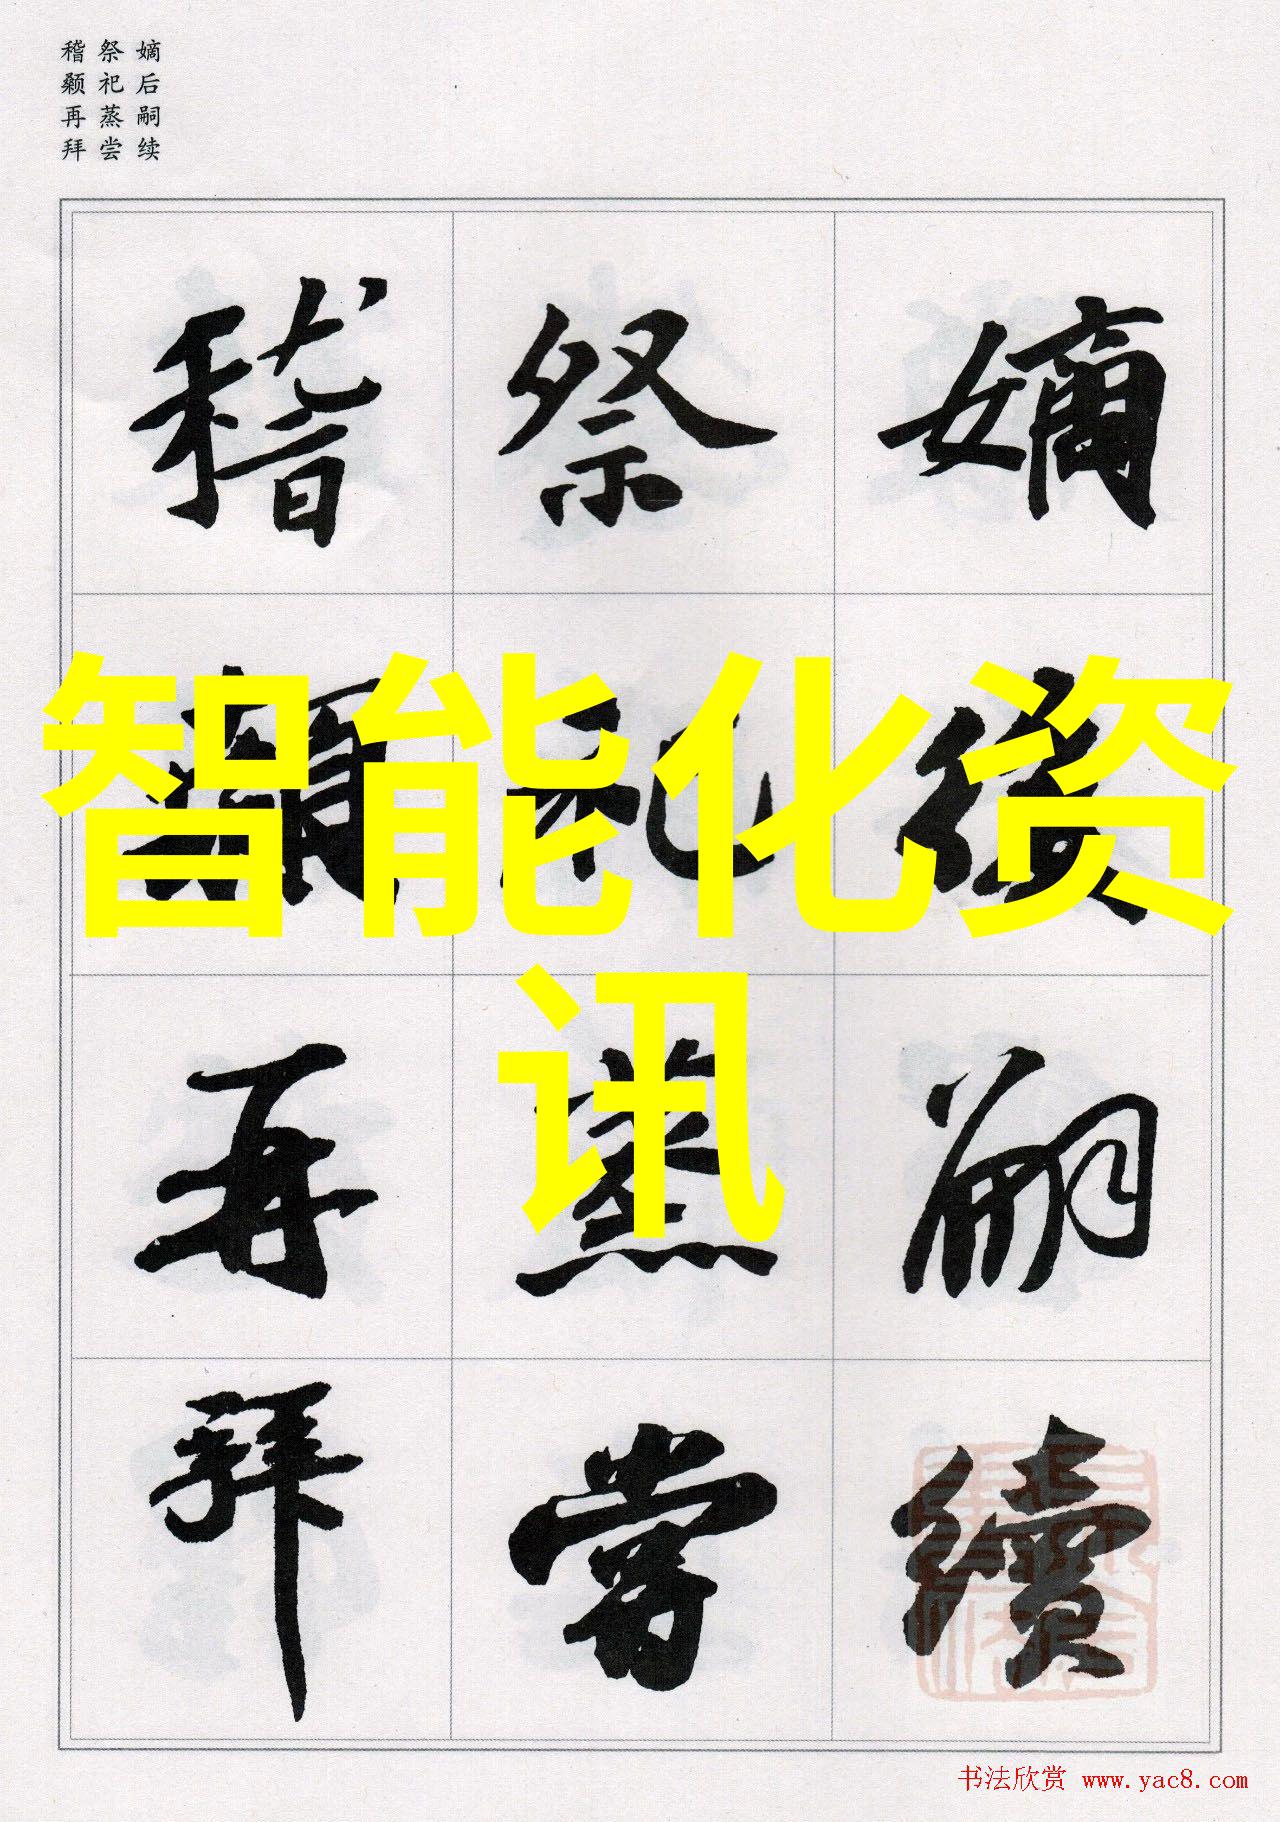 嫡后嗣续
祭祀蒸尝
稽颡再拜
嫡後嗣續
祭祀蒸嘗
稽顙再拜
智能化资
讯
书法欣赏 www.yac8.com